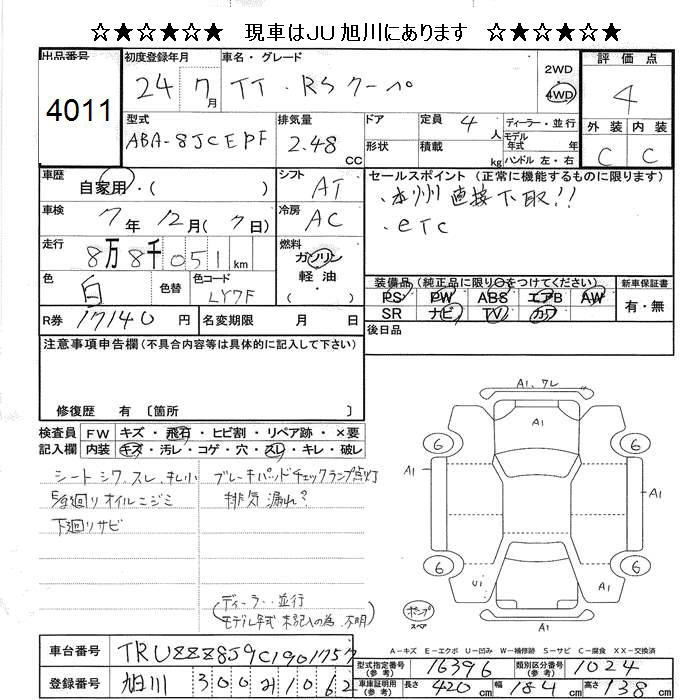 ☆★☆★☆★ 現車はJU旭川にあります ☆★☆★☆★
出品番号
4011
初度登録年月
24 7月
車名・グレード
TT・RSクーペ
2WD
4WD
評価点
4
外装 内装
C C
型式
ABA-8JCEPF
排気量
2.48 CC
ドア
形状
定員 4 人
積載 kg
ディーラー・並行
モデル年式 年
ハンドル 左・右
車歴
自家用・( )
シフト
AT
車検
7年12月(7日)
冷房
AC
走行
8万8千051km
燃料
ガソリン
軽油
( )
色
白
色替
色コード
LY7F
R券 17140円
名変期限 月 日
セールスポイント(正常に機能するものに限ります)
・本州直接下取!!
・etc
装備品(純正品に限り○をつけてください)
PS PW ABS エアB AW
SR ナビ TV カワ
新車保証書
有・無
後日品
注意事項申告欄(不具合内容等は具体的に記入して下さい)
修復歴 有〔箇所 〕
検査員 FW キズ・飛石・ヒビ割・リペア跡・×要
記入欄 内装 キズ・汚レ・コゲ・穴・スレ・キレ・破レ
シートシワ、スレ、キレ小
下廻リサビ
ブレーキパッドチェックランプ点灯
排気漏れ?
(ディーラー・並行
モデル年式 未記入の為、不明)
A1、ワレ
A1
6
6
A1
A1
6
6
U1
A1
A1
ポンプ
スペア
A-キズ E-エクボ U-凹み W-補修跡 S-サビ C-腐食 XX-交換済
車台番号 TRUZZZ8J9C1901757
登録番号 旭川 300 21062
型式指定番号(参考) 16396
類別区分番号(参考) 1024
車庫証明用(参考) 長さ 420cm 幅 184cm 高さ 138cm